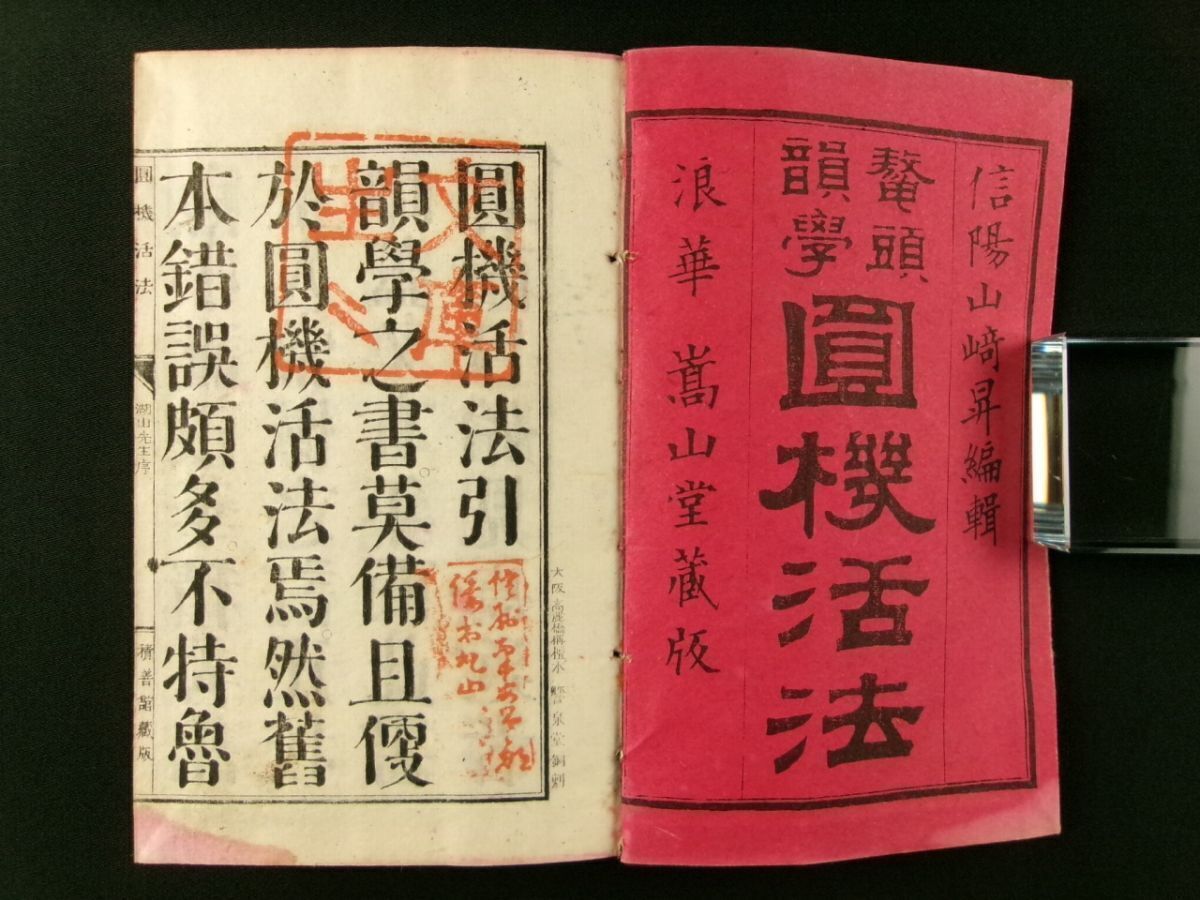 信陽山﨑昇編輯
鼇頭
韻學
圓機活法
浪華 嵩山堂藏版
圓機活法引
韻學之書莫備且便
於圓機活法焉然舊
本錯誤頗多不特魯
圓機活法
湖山先生序
積善館藏版
文庫